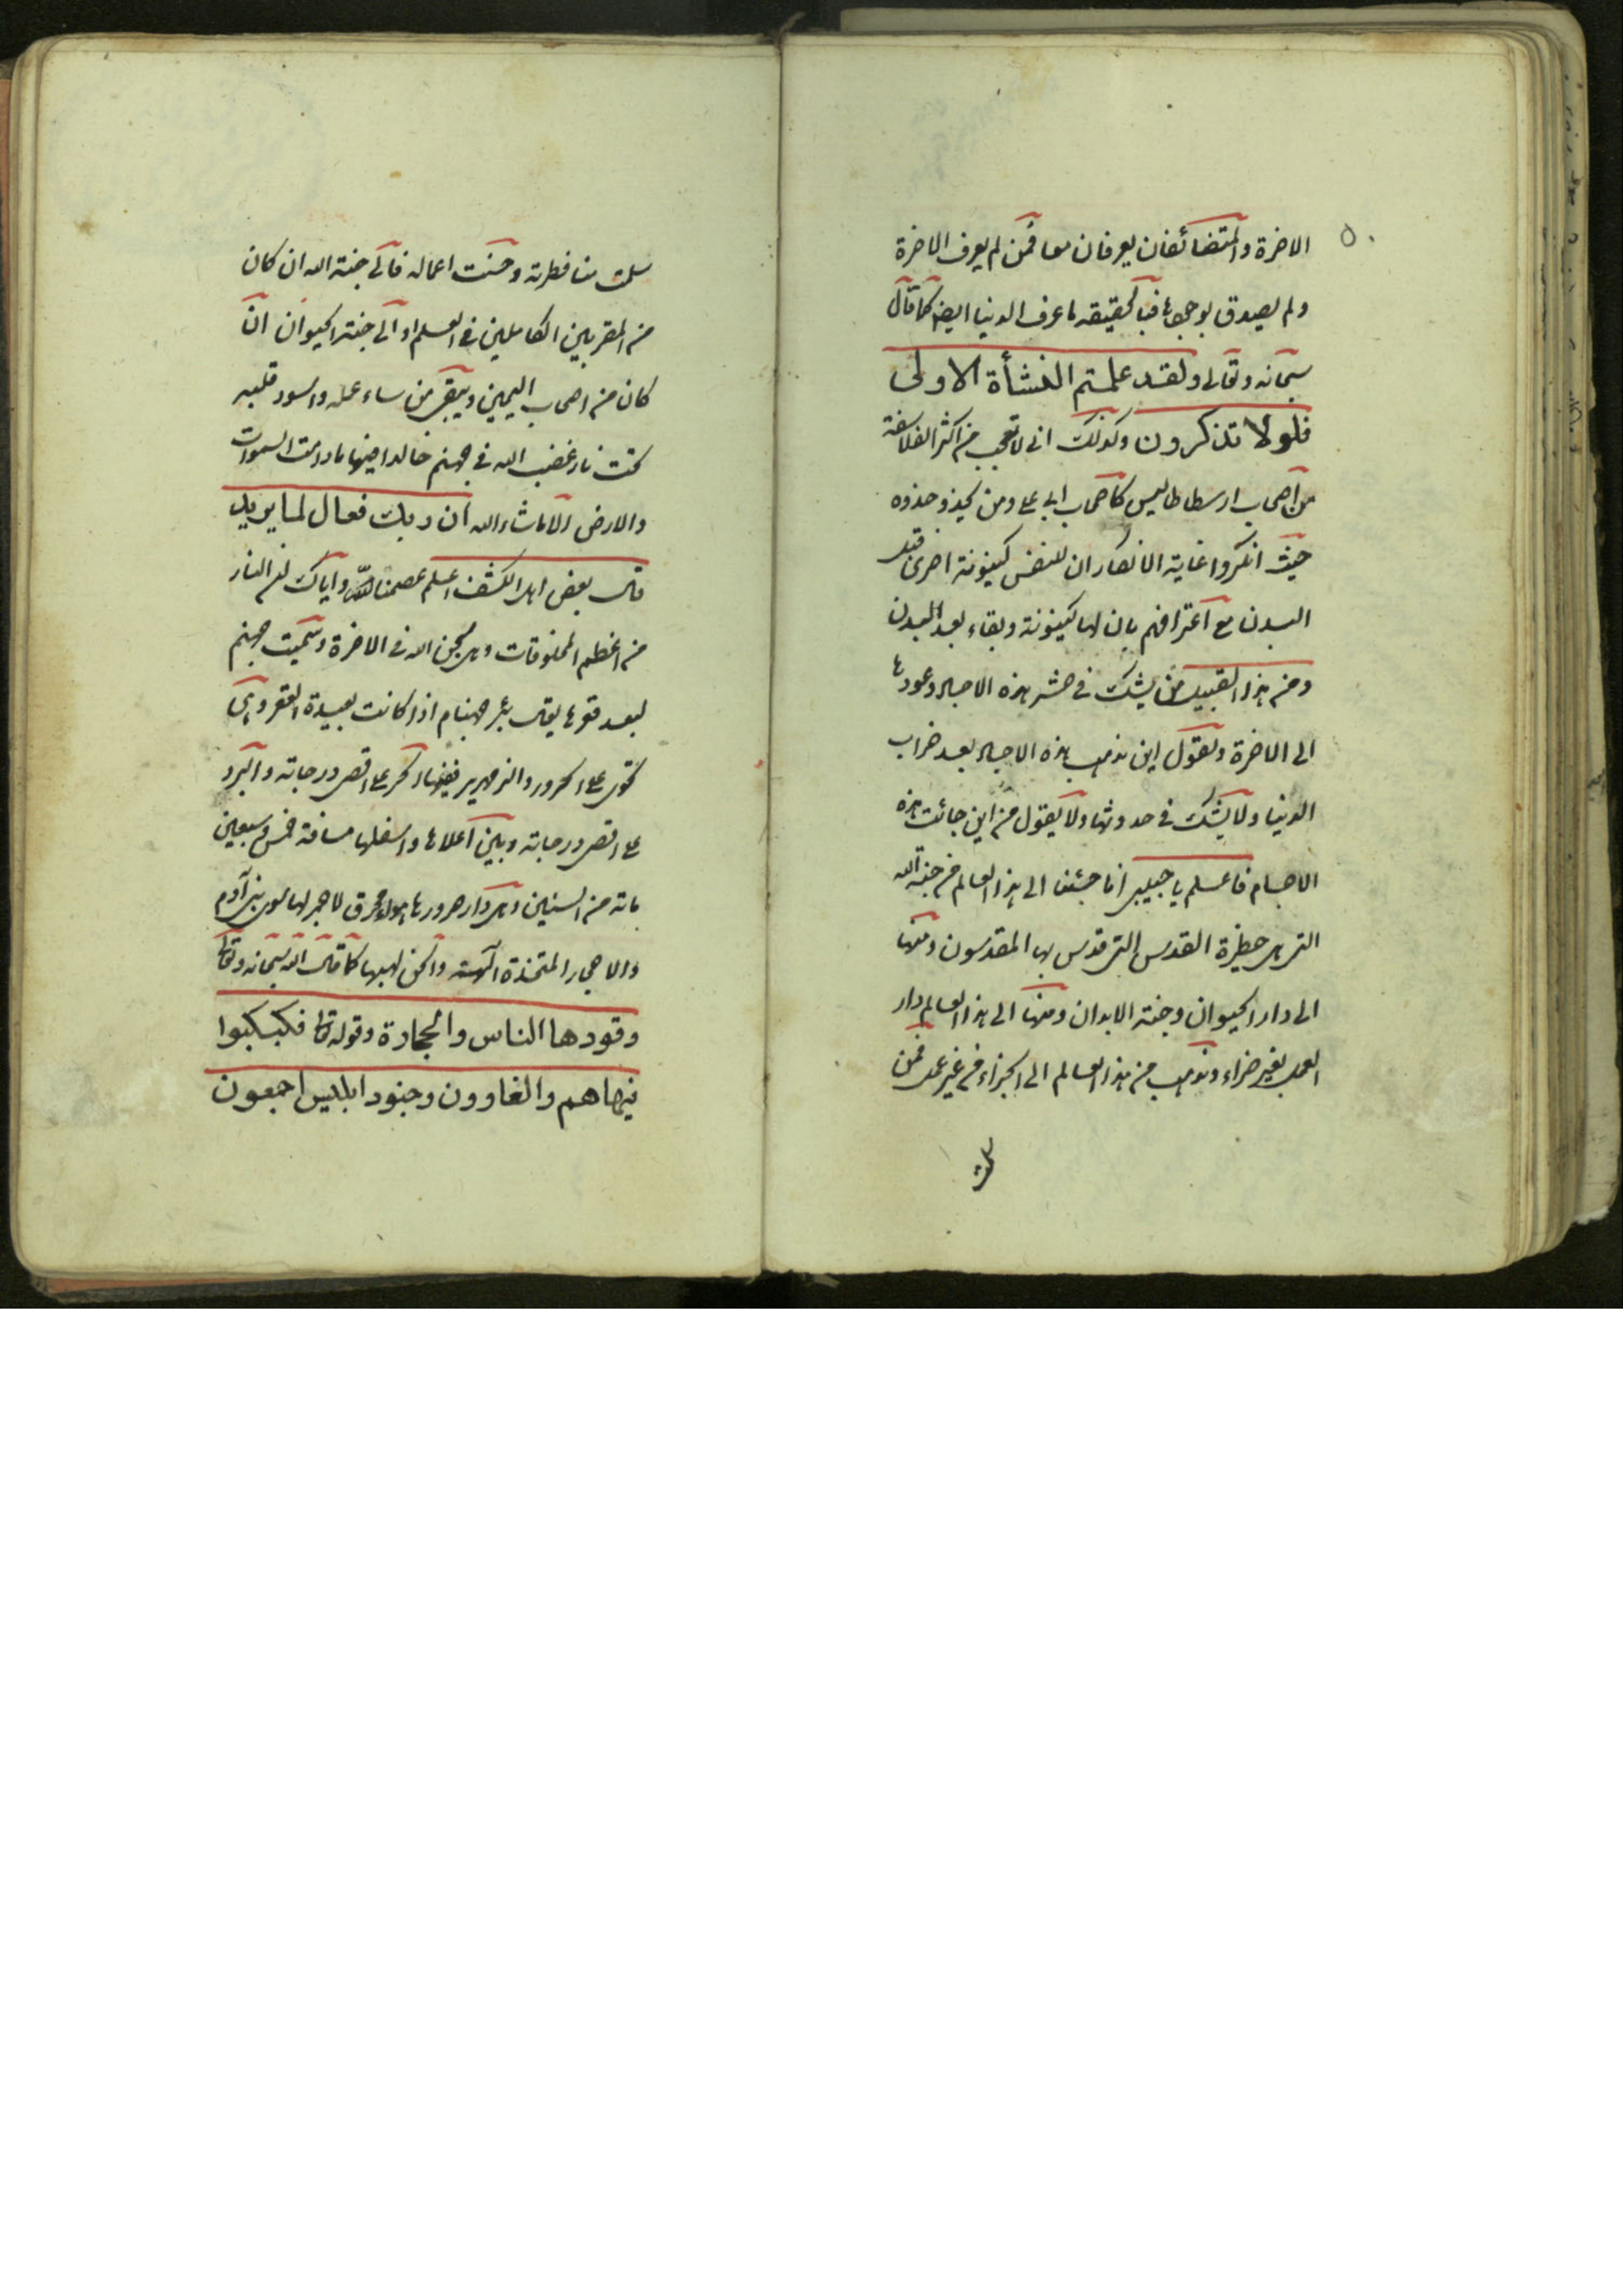 ٥٠
الاخرة والمتضائفان يعرفان معا فمن لم يعرف الاخرة
ولم يصدق بوجودها فبالحقيقة ما عرف الدنيا ايضا كما قال
سبحانه وتعالى ولقد علمتم النشأة الاولى
فلولا تذكرون وكذلك انى لاتعجب من اكثر الفلاسفة
من اصحاب ارسطاطاليس كاصحاب ابى على ومن يحذو حذوه
حيث انكروا غاية الانكار ان للنفس كينونة اخرى قبل
البدن مع اعترافهم بان لها كينونة وبقاء بعد البدن
ومن هذا القبيل من يشك فى حشر هذه الاجساد وعودها
الى الاخرة ويقول اين تذهب هذه الاجساد بعد خراب
الدنيا ولا يشك فى حدوثها ولا يقول من اين جائت هذه
الاجسام فاعلم يا حبيبى انا جئنا الى هذا العالم من جنة الله
التى هى حظيرة القدس التى قدس بها المقدسون ومنها
الى دار الحيوان وجنة الابدان ومنها الى هذا العالم دار
العمل بغير جزاء ونذهب من هذا العالم الى الجزاء من غير عمل فمن
سلمت
سلمت منا فطرته وحسنت اعماله فالى جنة الله ان كان
من المقربين الكاملين فى العلم او الى جنة الحيوان ان
كان من اصحاب اليمين ويبقى من ساء عمله واسود قلبه
تحت نار غضب الله فى جهنم خالدا فيها ما دامت السموات
والارض الا ما شاء الله ان ربك فعال لما يريد
قال بعض اهل الكشف اعلم عصمنا الله واياك ان النار
من اعظم المخلوقات وهى سجن الله فى الاخرة وسميت جهنم
لبعد قعرها يقال بئر جهنام اذا كانت بعيدة القعر وهى
تحوى على الحرور والزمهرير ففيها الحر على اقصى درجاته والبرد
على اقصى درجاته وبين اعلاها واسفلها مسافة خمس وسبعين
مائة من السنين وهى دار حرورها هواء محرق لا جمر لها سوى بنى آدم
والاحجار المتخذة آلهة والجن لهبها كما قال الله سبحانه وتعالى
وقودها الناس والحجارة وقوله تعالى فكبكبوا
فيها هم والغاوون وجنود ابليس اجمعون